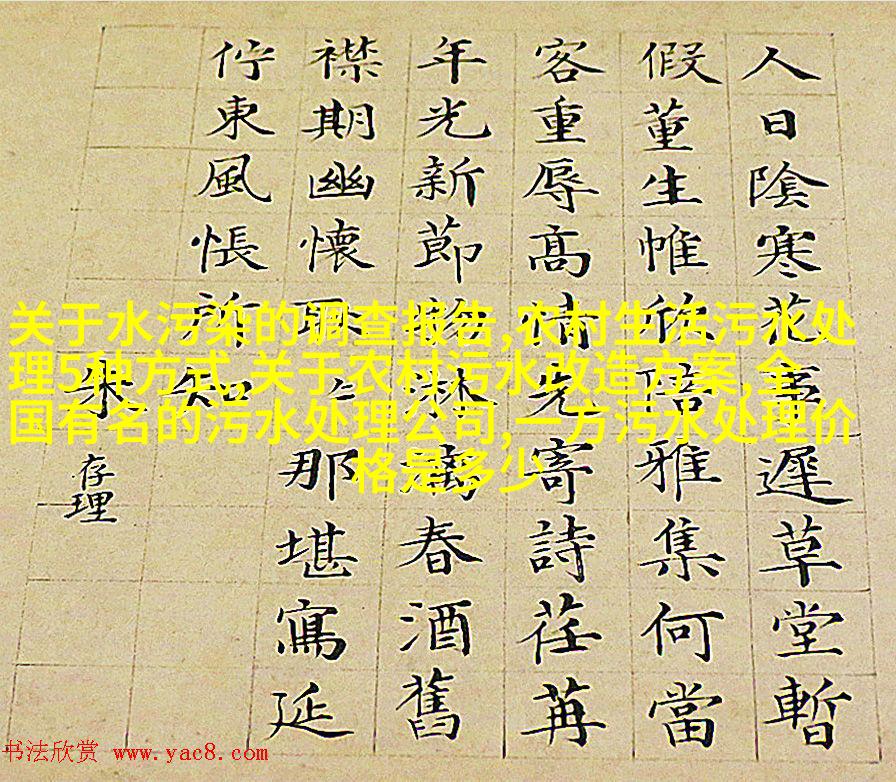 人日陰寒花事遲草堂暫
假董生帷欣陪雅集何當
客重辱高情先寄詩荏苒
年光新節淋漓春酒舊
襟期幽懷耿〻那堪寫延
佇東風悵所知
朱存理
关于水污染的调查报告,农村生活污水处
理5种方式,关于农村污水改造方案,全
国有名的污水处理公司,一方污水处理价
格是多少
书法欣赏 www.yac8.com